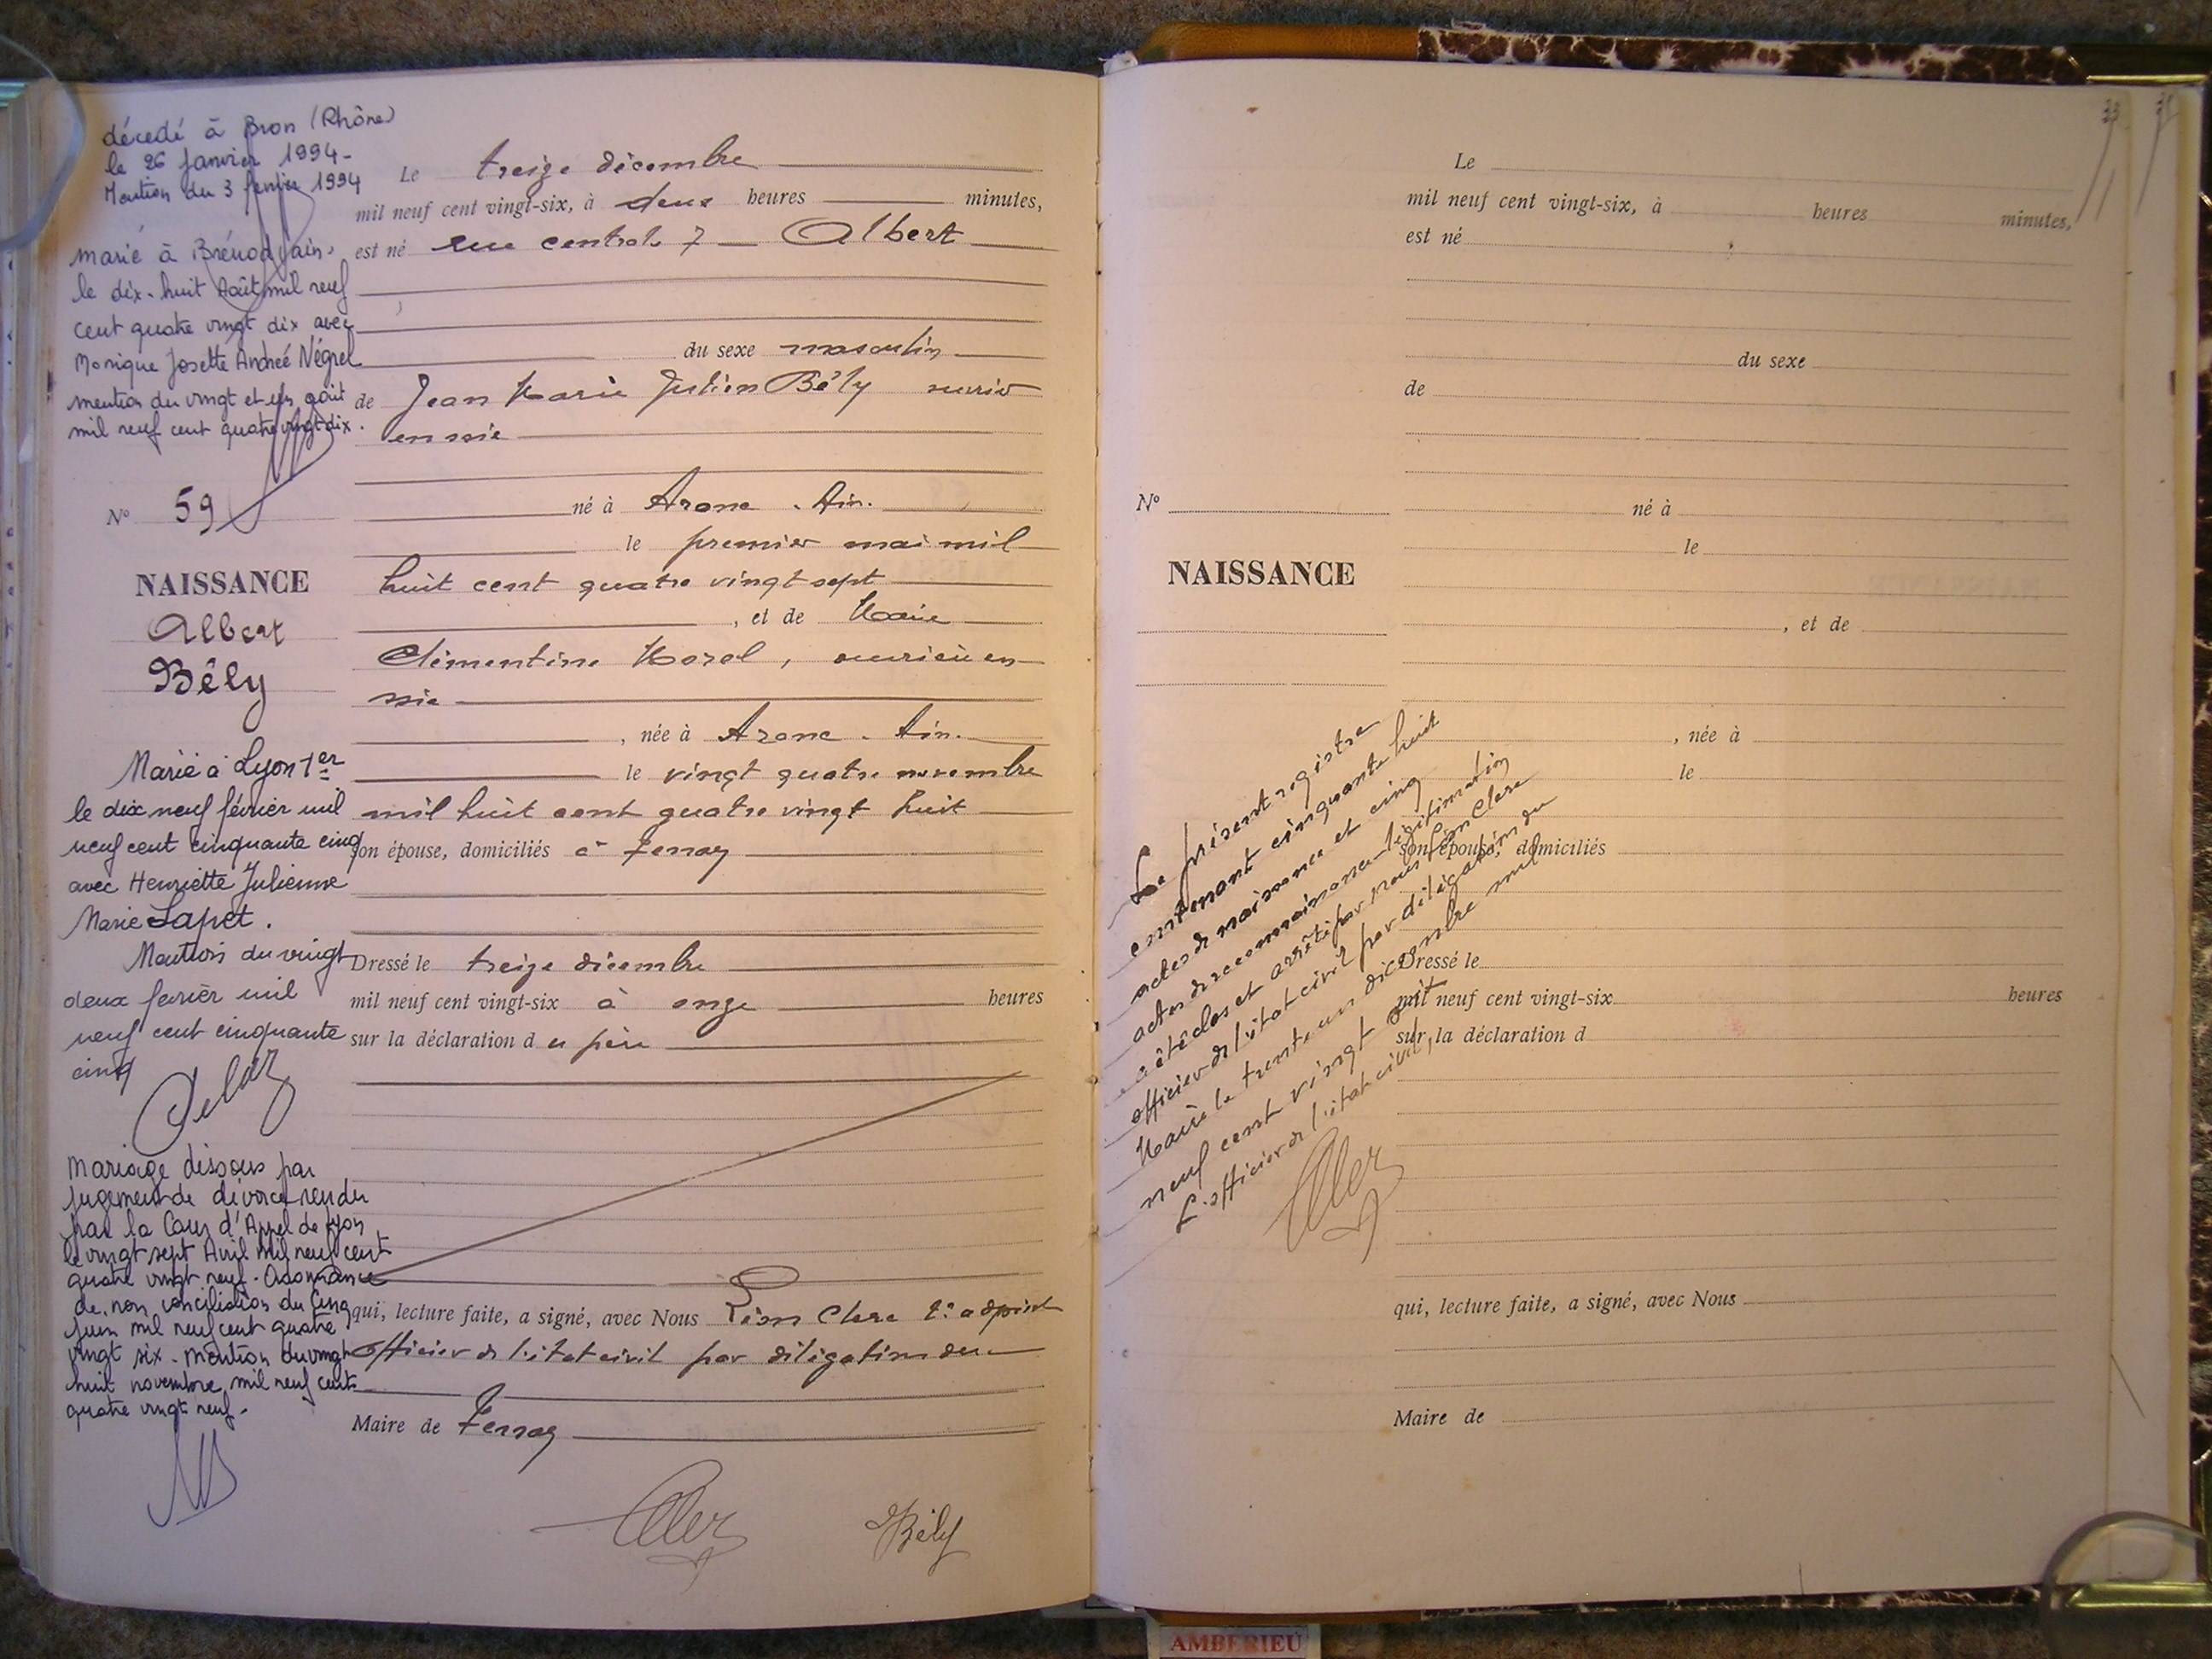 décedé à Bron (Rhône)
le 26 Janvier 1994-
Mention du 3 février 1994
marié à Brénod Ain.
le dix-huit Août mil neuf
cent quatre vingt dix avec
Monique Josette Andreé Négrel
mention du vingt et un août
mil neuf cent quatre vingt dix.
N° 59
NAISSANCE
Albert
Bély
Marié à Lyon 1er
le dix neuf février mil
neuf cent cinquante cinq
avec Henriette Julienne
Marie Lapet.
Mention du vingt
deux février mil
neuf cent cinquante
cinq
Mariage dissous par
jugement de divorce rendu
par la Cour d'Appel de Lyon
le vingt sept Avril mil neuf cent
quatre vingt neuf. Ordonnance
de non conciliation du Cinq
juin mil neuf cent quatre
vingt six. Mention du vingt
huit novembre mil neuf cent
quatre vingt neuf.
Le treize décembre
mil neuf cent vingt-six, à deux heures minutes,
est né rue centrale 7 Albert
du sexe masculin
de Jean Marie Julien Bély ouvrier
en soie
né à Aranc . Ain.
le premier mai mil
huit cent quatre vingt sept
, et de Marie
Clémentine Morel, ouvrière en
soie
, née à Aranc . Ain.
le vingt quatre novembre
mil huit cent quatre vingt huit
son épouse, domiciliés à Tenay
Dressé le treize décembre
mil neuf cent vingt-six à onze heures
sur la déclaration du père
qui, lecture faite, a signé, avec Nous Léon Clerc 1er adjoint
officier de l'état civil par délégation du
Maire de Tenay
Bély
Le
mil neuf cent vingt-six, à heures minutes,
est né
du sexe
de
N°
né à
le
NAISSANCE
, et de
, née à
le
son épouse, domiciliés
Dressé le
mil neuf cent vingt-six heures
sur la déclaration d
qui, lecture faite, a signé, avec Nous
Maire de
Le présent registre
contenant cinquante huit
actes de naissance et cinq
actes de reconnaissance-légitimation
a été clos et arrêté par nous Léon Clerc
officier de l'état civil par délégation du
Maire le trente un décembre mil
neuf cent vingt six
L'officier de l'état civil,
AMBERIEU